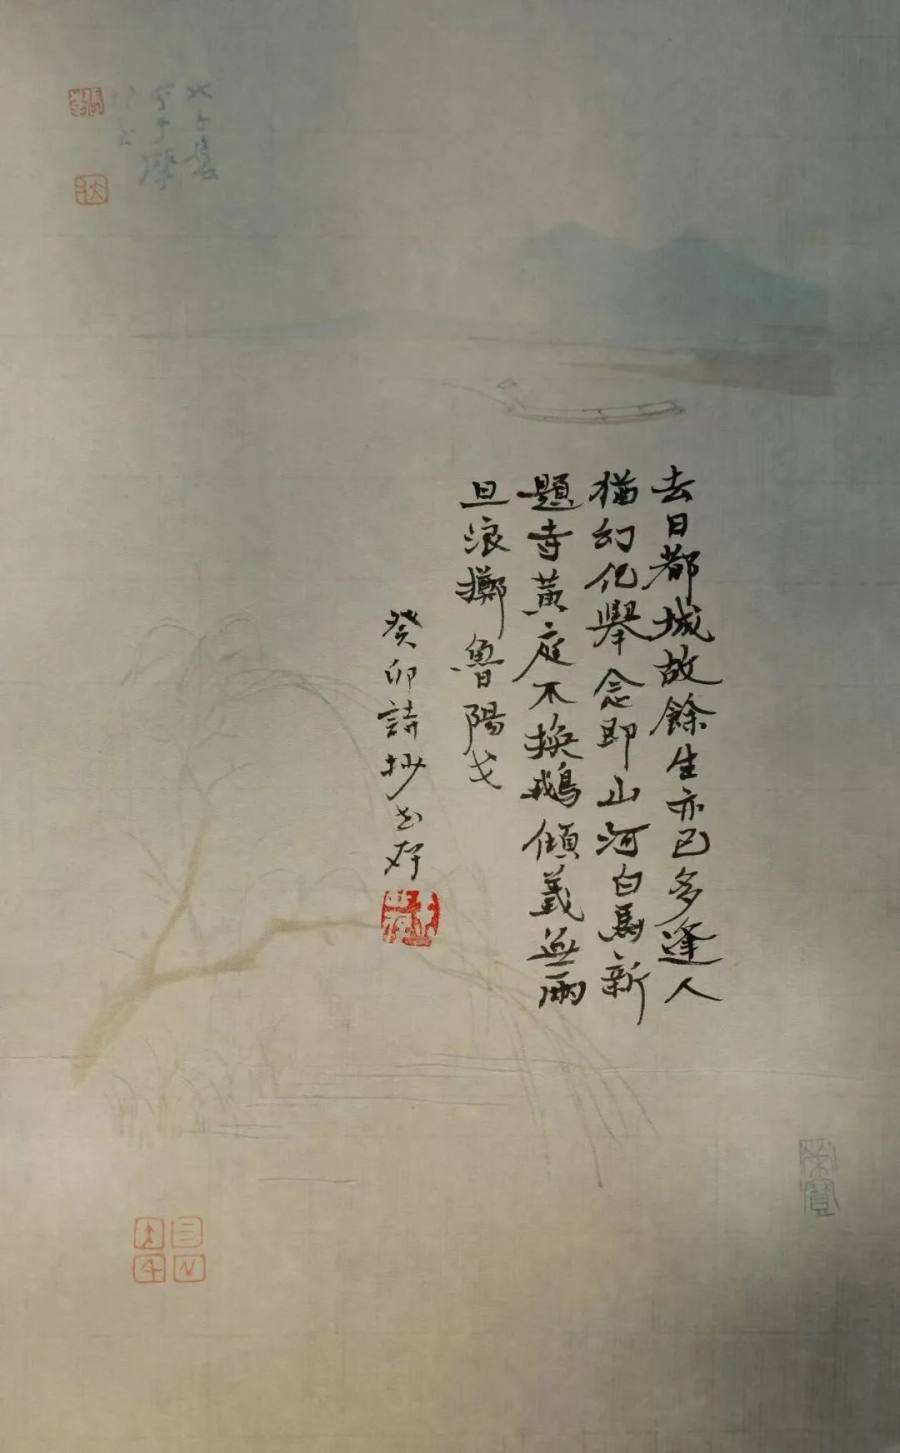 去日都城故餘生亦已多逢人
猶幻化舉念即山河白馬新
題寺黃庭不換鵝傾羲無兩
旦浪擲魯陽戈
癸卯詩抄
榮寶